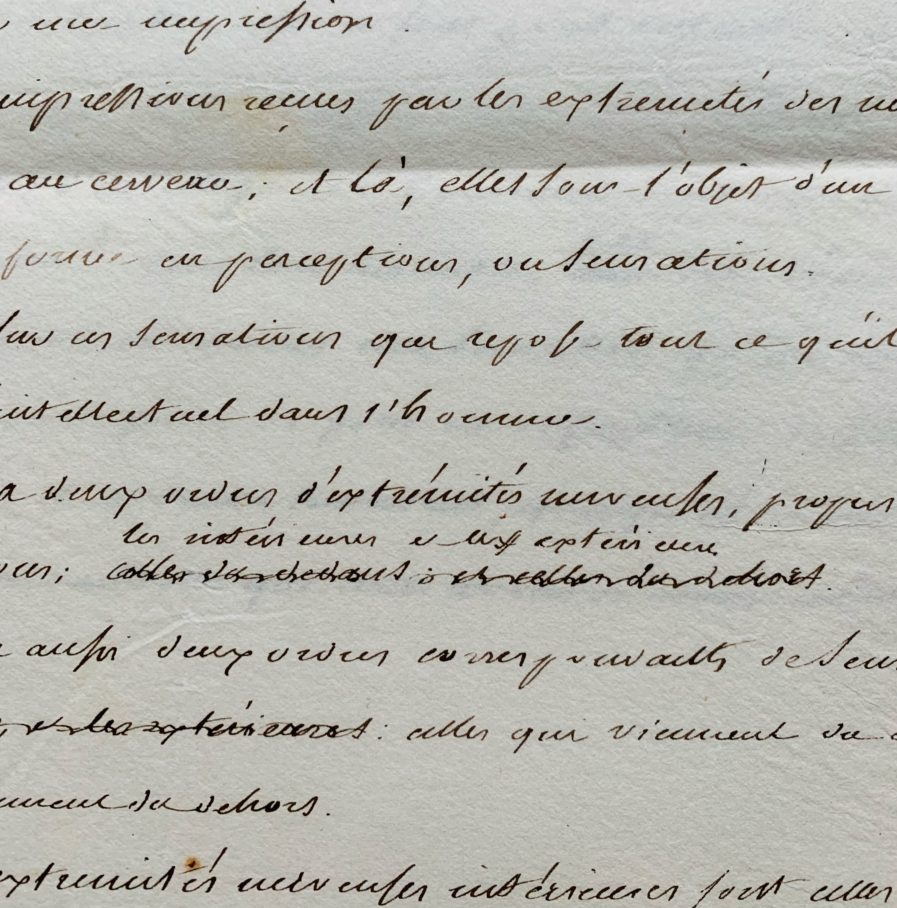 une impression.
impressions recues par les extremités des
au cerveau; et là, elles sont l'objet d'un
en perceptions, ou sensations.
sur ces sensations que repose tout ce qu'il
intellectuel dans l'homme.
a deux ordres d'extrémités nerveuses, propres
les intérieures et les extérieures
celles du dedans: et celles du dehors.
aussi deux ordres correspondants de
et les extérieures: celles qui viennent du
du dehors.
extremités nerveuses intérieures sont celles